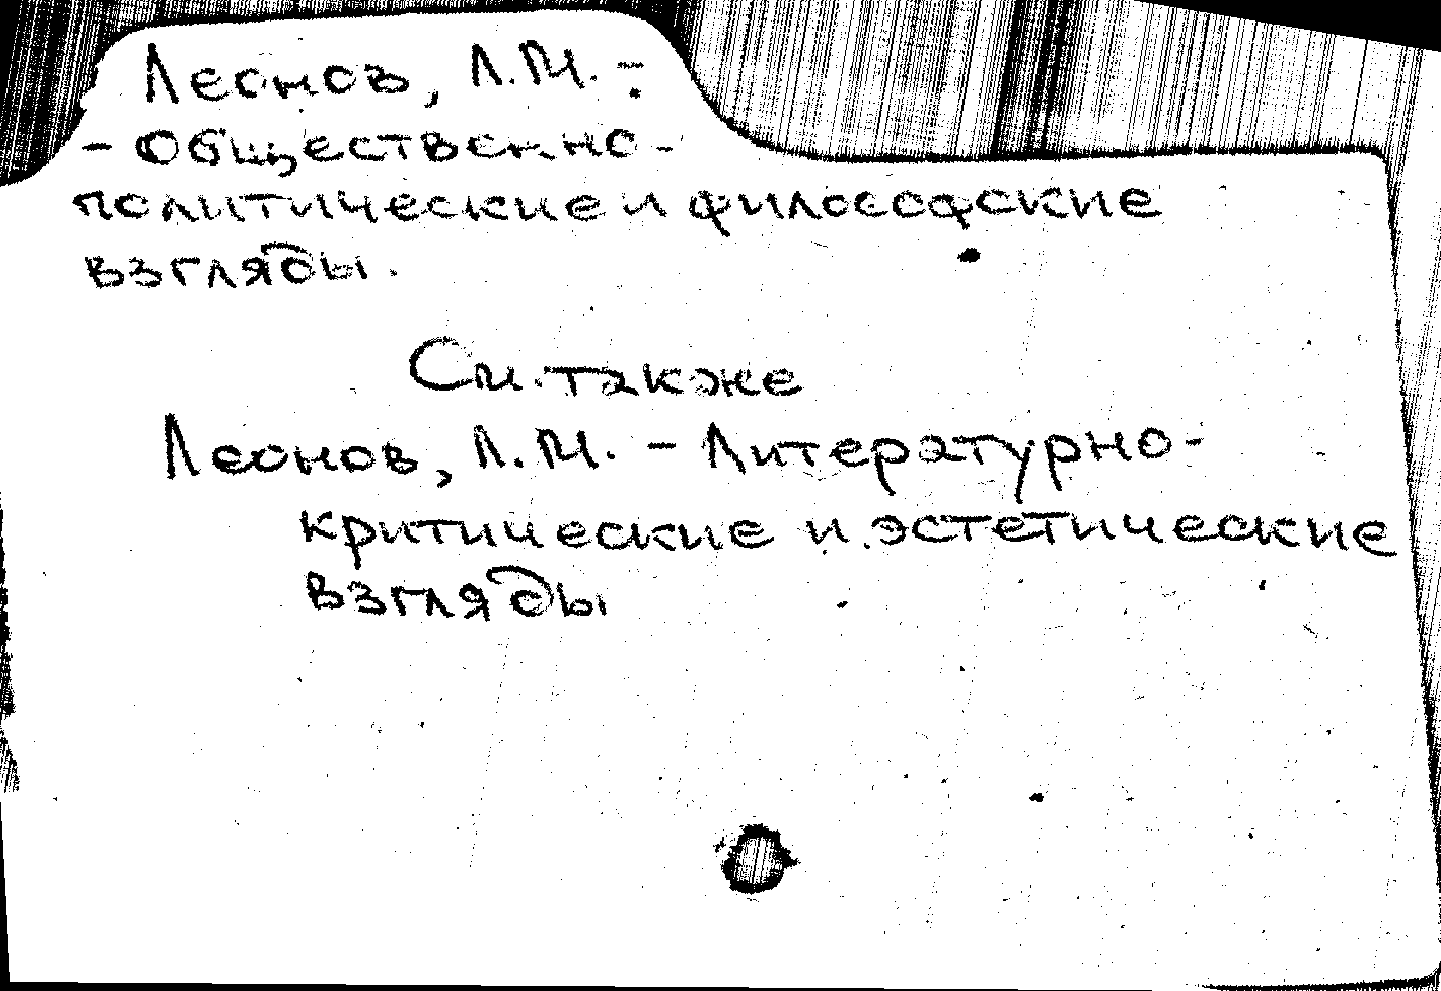 Леонов, Л.М. -
- Общественно-
политические и философские
взгляды.
См. также
Леонов, Л.М. - Литературно-
критические и эстетические
взгляды